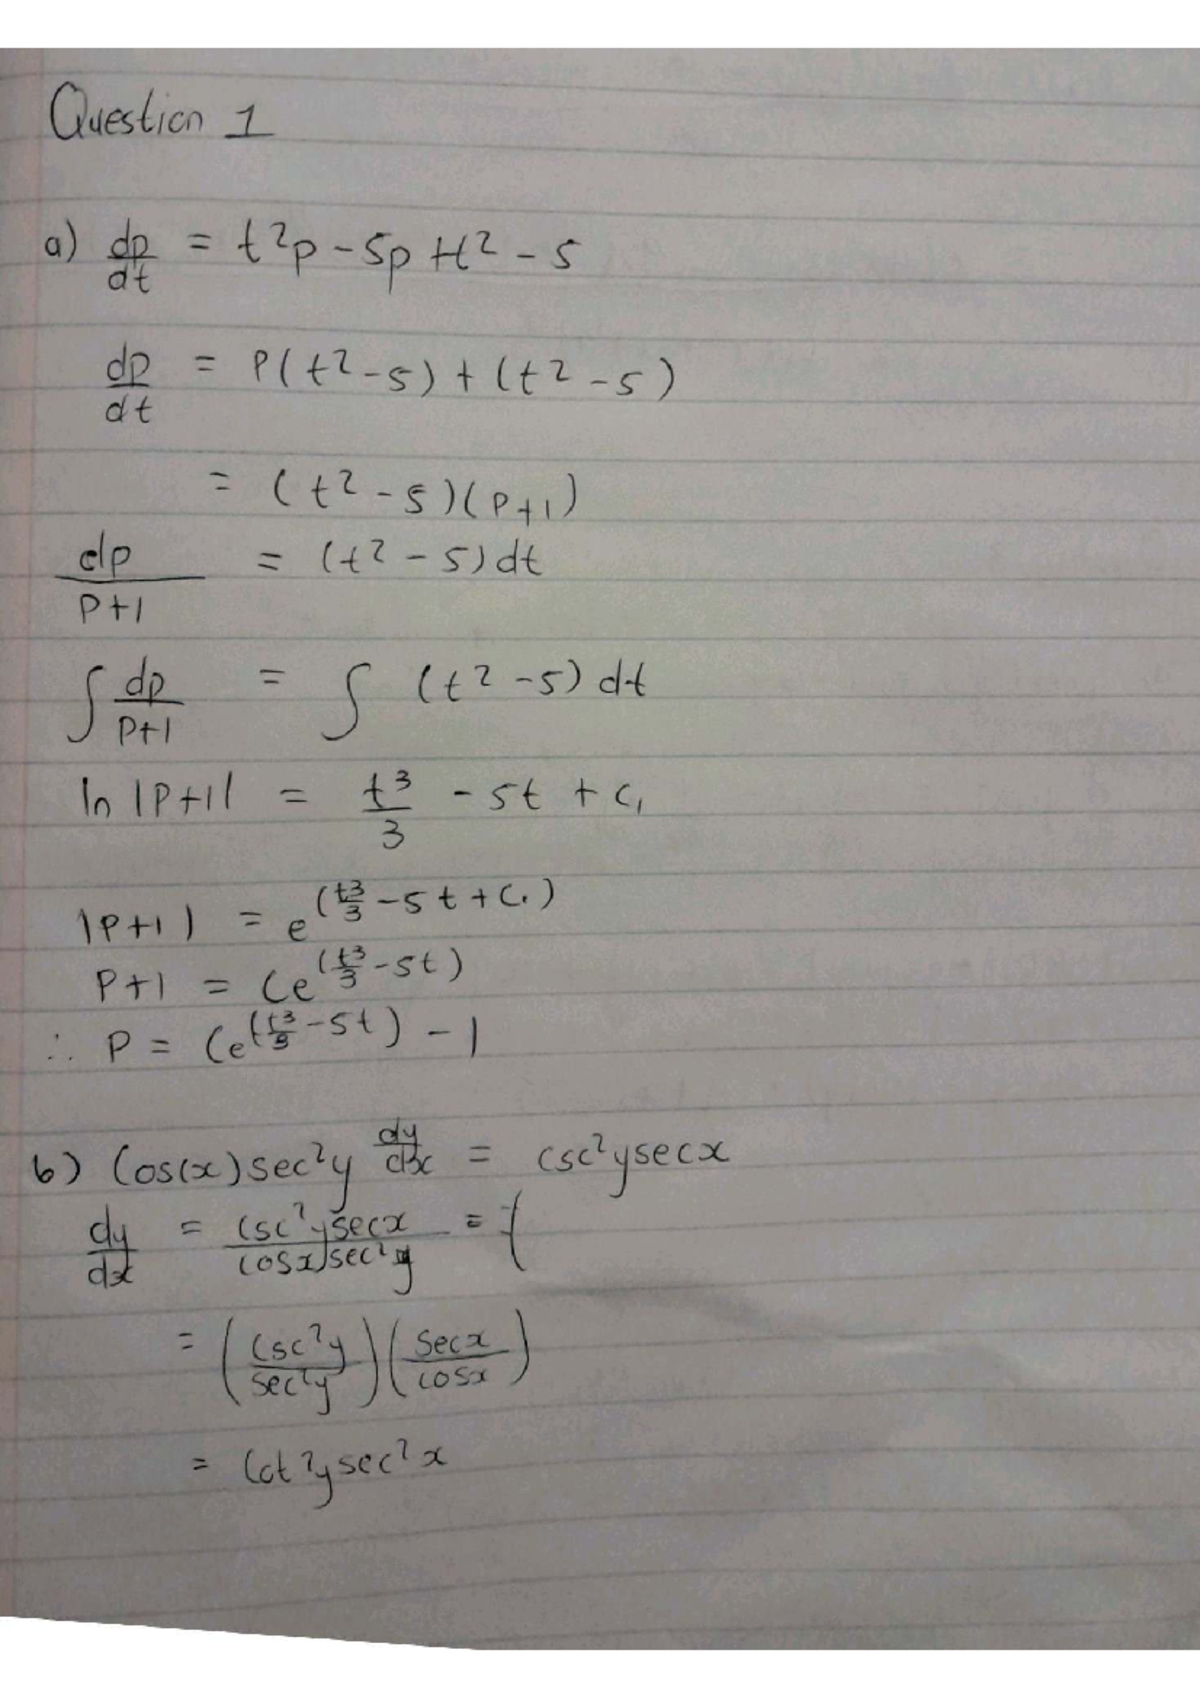 Question 1
a) dp/dt = t²p - 5p + t² - 5
dp/dt = P(t² - 5) + (t² - 5)
= (t² - 5)(P+1)
dp/P+1 = (t² - 5)dt
∫ dp/P+1 = ∫ (t² - 5) dt
ln |P+1| = t³/3 - 5t + C₁
|P+1| = e^(t³/3 - 5t + C₁)
P+1 = Ce^(t³/3 - 5t)
∴ P = Ce^(t³/3 - 5t) - 1
b) Cos(x)sec²y dy/dx = csc²ysecx
dy/dx = csc²ysecx/cosxsec²y = (
= (csc²y/sec²y)(secx/cosx)
= Cot²ysec²x